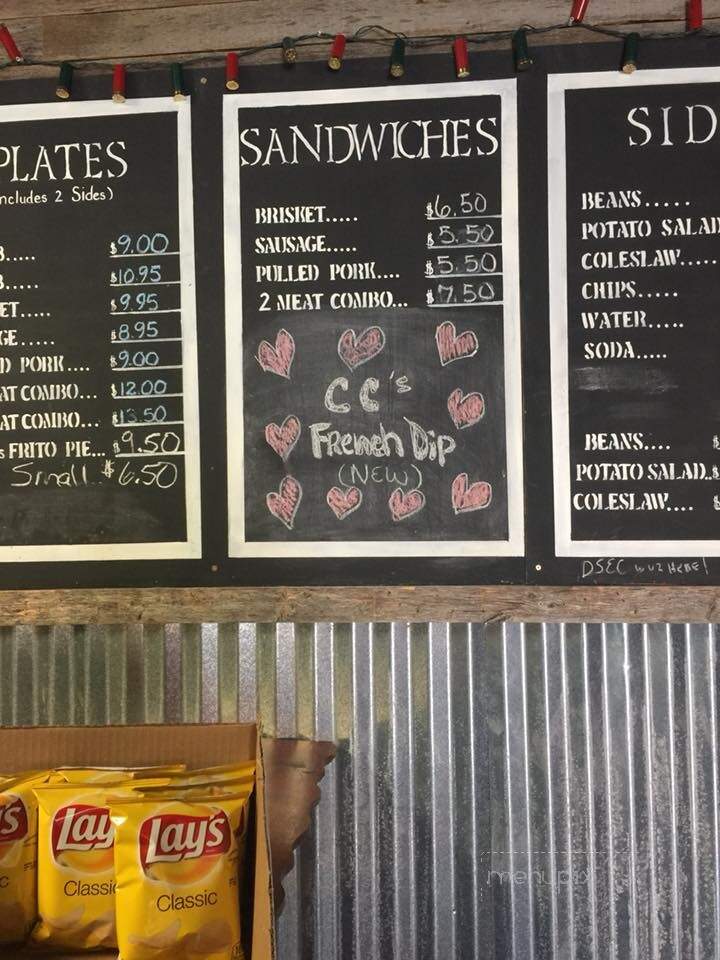 PLATES
ncludes 2 Sides)
B..... $9.00
B..... $10.95
ET.... $9.95
GE.... $8.95
D PORK.... $9.00
AT COMBO... $12.00
AT COMBO... $13.50
s FRITO PIE... $9.50
Small $6.50
SANDWICHES
BRISKET..... $6.50
SAUSAGE..... $5.50
PULLED PORK.... $5.50
2 MEAT COMBO... $7.50
CC's
French Dip
(NEW)
SID
BEANS.....
POTATO SALAD
COLESLAW.....
CHIPS.....
WATER.....
SODA.....
BEANS.... $
POTATO SALAD..$
COLESLAW.... $
DSEC wuz HERE!
Lay's
Classic
Lay's
Classic
menupix